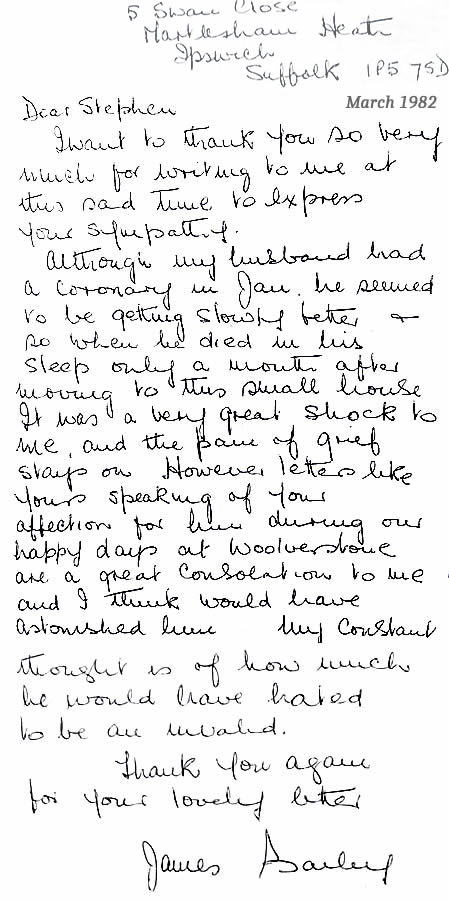 5 Swan Close
Martlesham Heath
Ipswich
Suffolk IP5 7SD
March 1982
Dear Stephen
I want to thank you so very
much for writing to me at
this sad time to express
your sympathy.
Although my husband had
a coronary in Jan. he seemed
to be getting slowly better +
so when he died in his
sleep only a month after
moving to this small house
It was a very great shock to
me, and the pain of grief
stays on However letters like
yours speaking of your
affection for him during our
happy days at Woolverstone
are a great consolation to me
and I think would have
astonished him My constant
thought is of how much
he would have hated
to be an invalid.
Thank you again
for your lovely letter